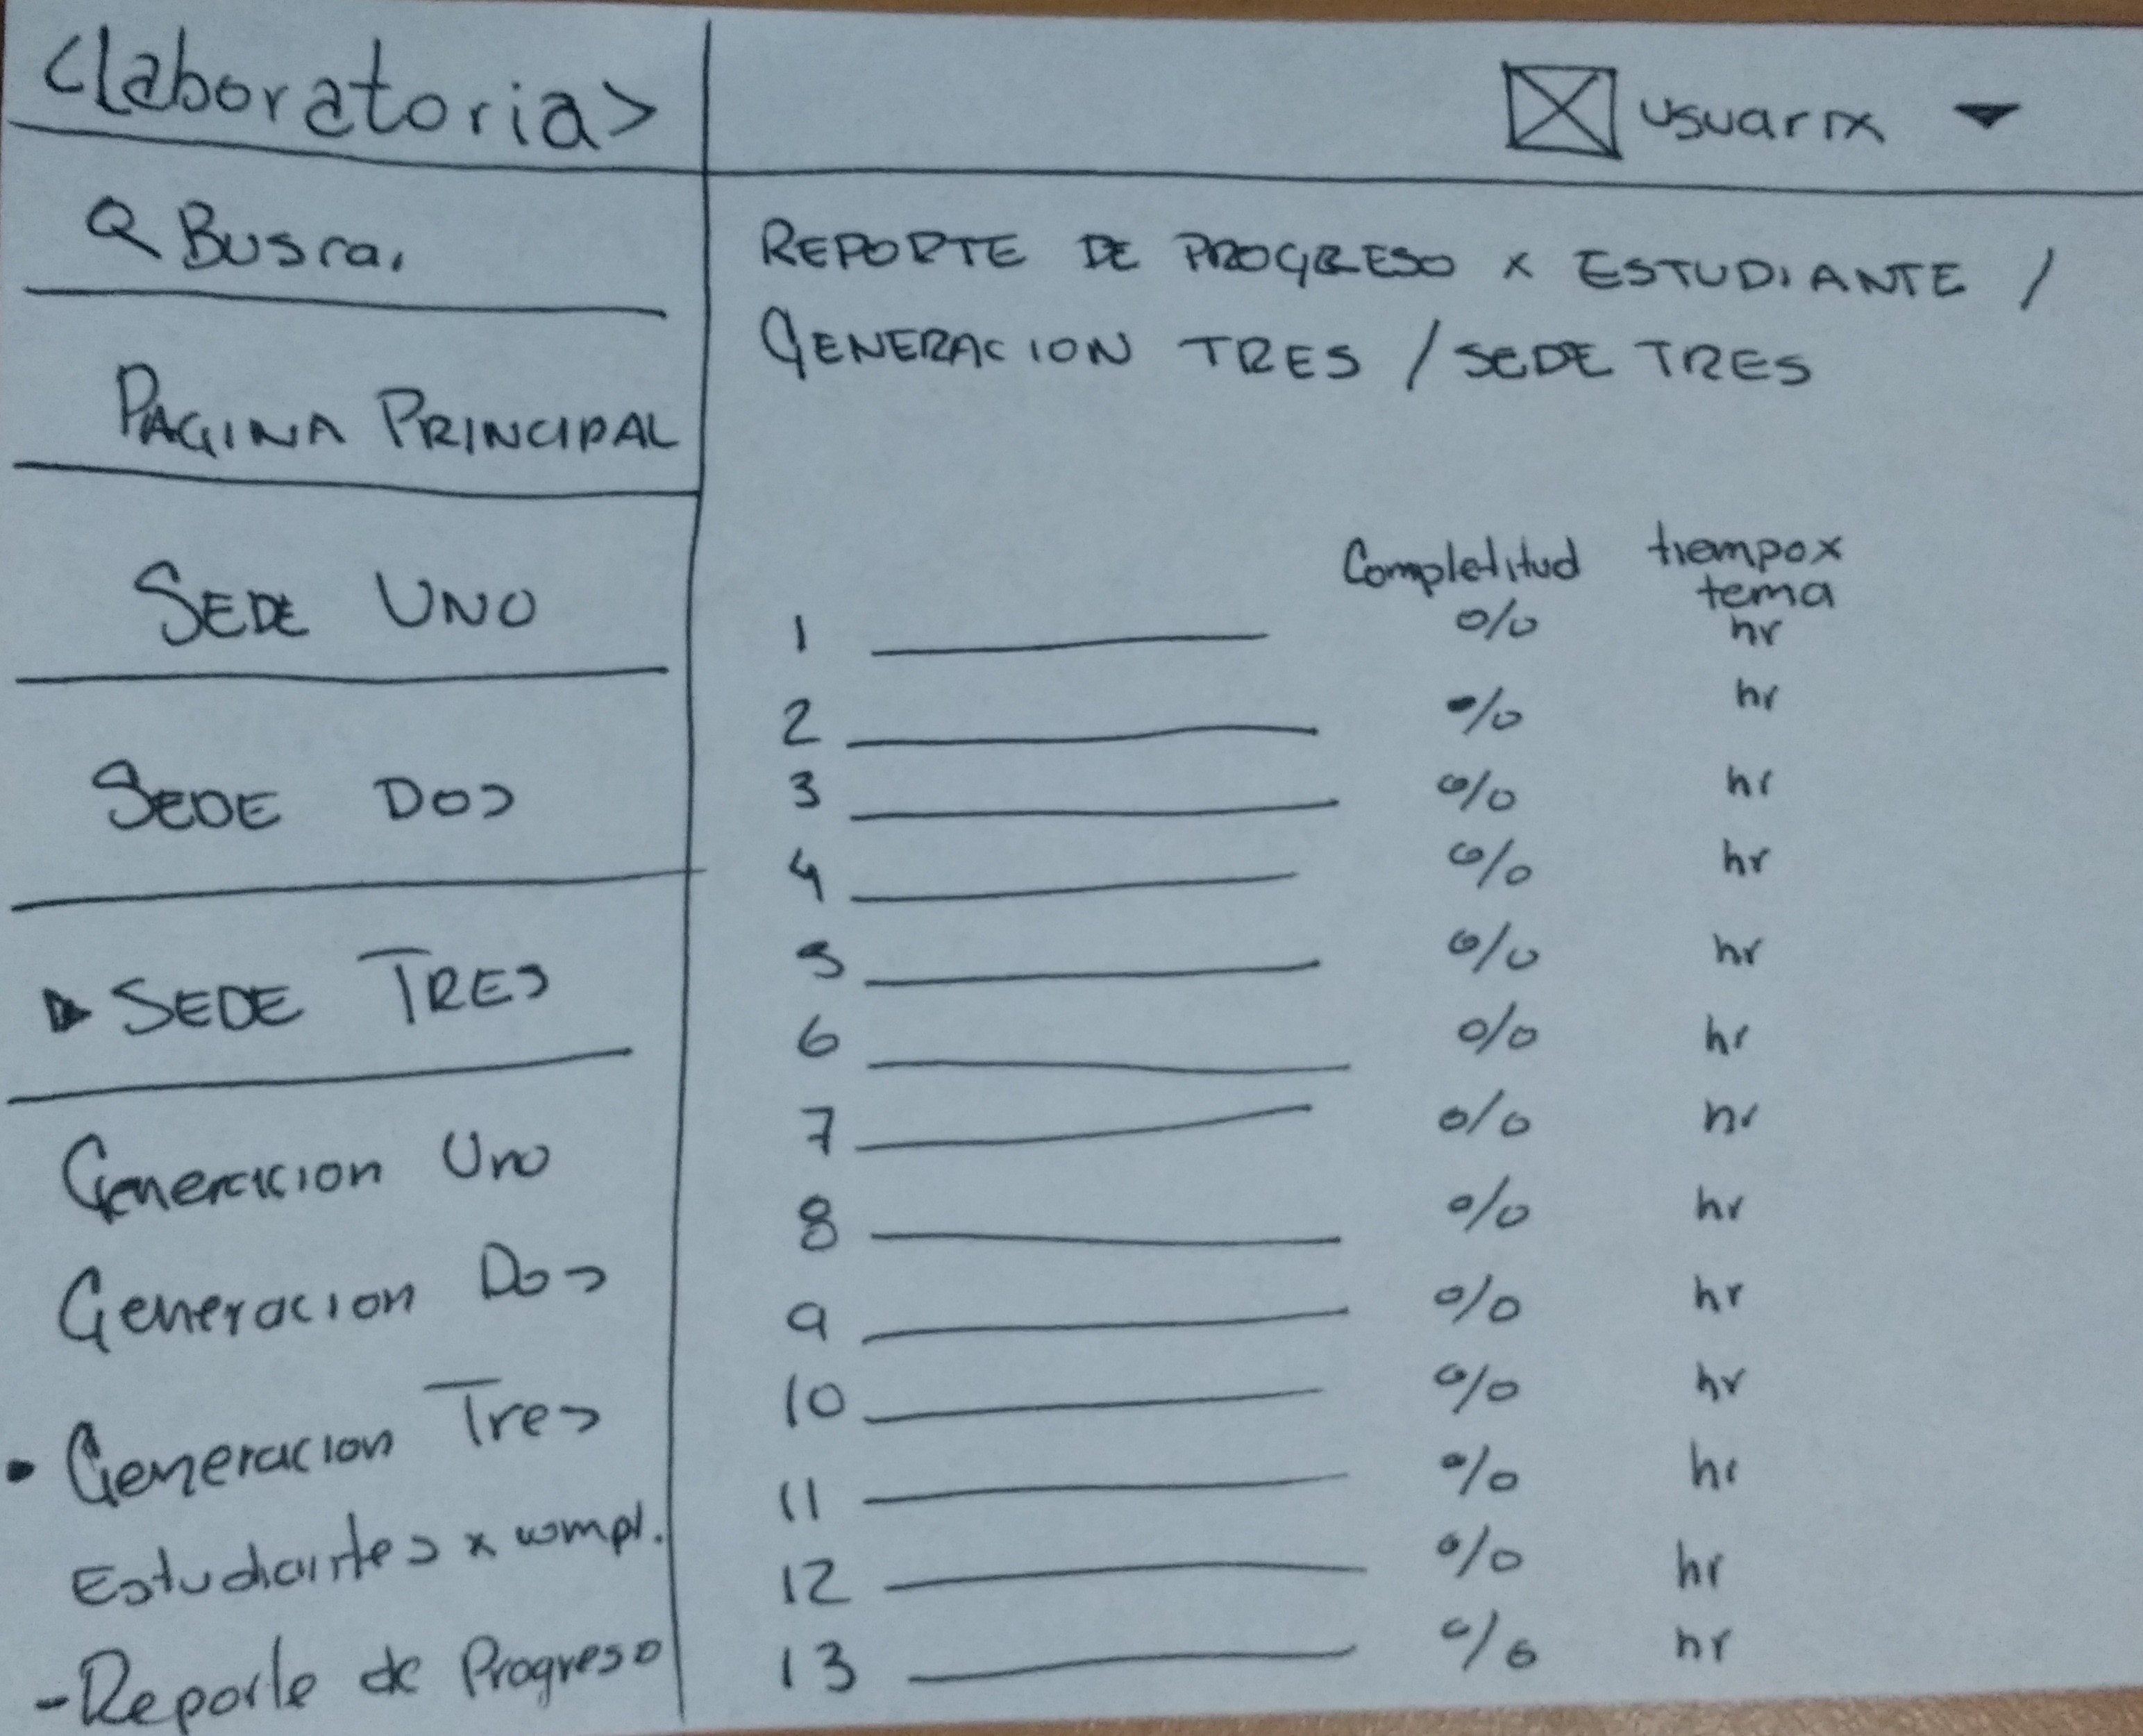 <laboratoria>
usuarix
Busca,
PAGINA PRINCIPAL
SEDE UNO
SEDE DOS
SEDE TRES
Generacion Uno
Generacion Dos
Generacion Tres
Estudiantes x compl.
-Reporte de Progreso
REPORTE DE PROGRESO x ESTUDIANTE /
GENERACION TRES / SEDE TRES
Completitud tiempo x
tema
1 % hr
2 % hr
3 % hr
4 % hr
5 % hr
6 % hr
7 % hr
8 % hr
9 % hr
10 % hr
11 % hr
12 % hr
13 % hr